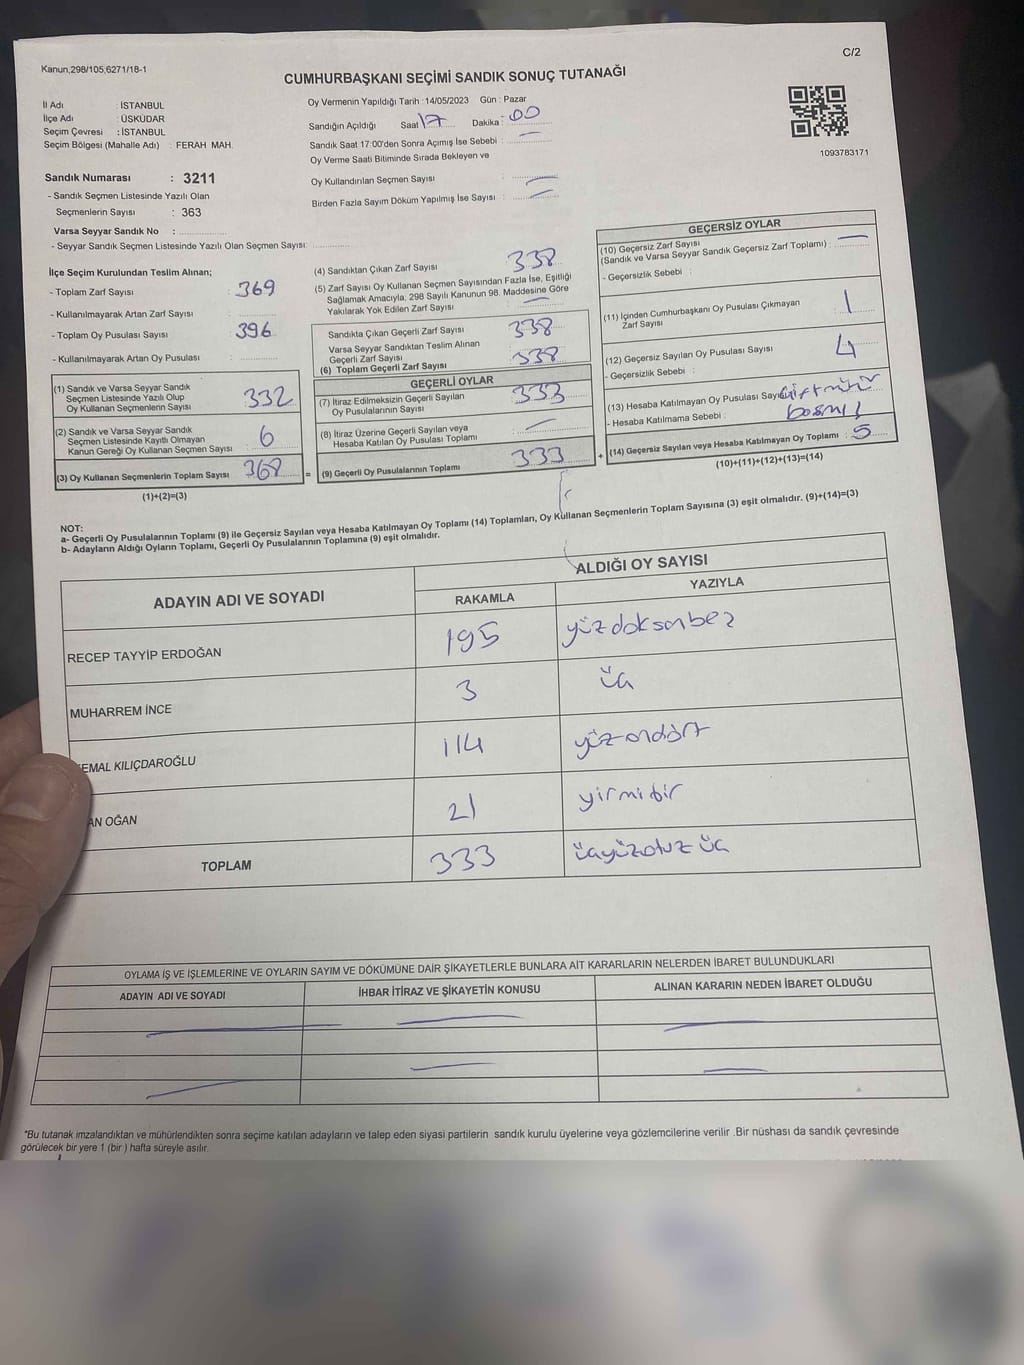 C/2
Kanun,298/105,6271/18-1
CUMHURBAŞKANI SEÇİMİ SANDIK SONUÇ TUTANAĞI
İl Adı : İSTANBUL
İlçe Adı : ÜSKÜDAR
Seçim Çevresi : İSTANBUL
Seçim Bölgesi (Mahalle Adı) : FERAH MAH.
Sandık Numarası : 3211
- Sandık Seçmen Listesinde Yazılı Olan
Seçmenlerin Sayısı : 363
Varsa Seyyar Sandık No :
- Seyyar Sandık Seçmen Listesinde Yazılı Olan Seçmen Sayısı:
Oy Vermenin Yapıldığı Tarih : 14/05/2023 Gün : Pazar
Sandığın Açıldığı Saat 17 Dakika : 00
Sandık Saat 17:00'den Sonra Açımış İse Sebebi :
Oy Verme Saati Bitiminde Sırada Bekleyen ve
Oy Kullandırılan Seçmen Sayısı :
Birden Fazla Sayım Döküm Yapılmış İse Sayısı :
1093783171
İlçe Seçim Kurulundan Teslim Alınan;
- Toplam Zarf Sayısı : 369
- Kullanılmayarak Artan Zarf Sayısı :
- Toplam Oy Pusulası Sayısı : 396
- Kullanılmayarak Artan Oy Pusulası :
(1) Sandık ve Varsa Seyyar Sandık
Seçmen Listesinde Yazılı Olup
Oy Kullanan Seçmenlerin Sayısı : 332
(2) Sandık ve Varsa Seyyar Sandık
Seçmen Listesinde Kayıtlı Olmayan
Kanun Gereği Oy Kullanan Seçmen Sayısı : 6
(3) Oy Kullanan Seçmenlerin Toplam Sayısı : 368 =
(1)+(2)=(3)
(4) Sandıktan Çıkan Zarf Sayısı : 338
(5) Zarf Sayısı Oy Kullanan Seçmen Sayısından Fazla İse, Eşitliği
Sağlamak Amacıyla, 298 Sayılı Kanunun 98. Maddesine Göre
Yakılarak Yok Edilen Zarf Sayısı :
Sandıkta Çıkan Geçerli Zarf Sayısı : 338
Varsa Seyyar Sandıktan Teslim Alınan
Geçerli Zarf Sayısı
(6) Toplam Geçerli Zarf Sayısı : 338
GEÇERLİ OYLAR
(7) İtiraz Edilmeksizin Geçerli Sayılan
Oy Pusulalarının Sayısı : 333
(8) İtiraz Üzerine Geçerli Sayılan veya
Hesaba Katılan Oy Pusulası Toplamı :
(9) Geçerli Oy Pusulalarının Toplamı : 333 +
GEÇERSİZ OYLAR
(10) Geçersiz Zarf Sayısı
(Sandık ve Varsa Seyyar Sandık Geçersiz Zarf Toplamı) :
- Geçersizlik Sebebi :
(11) İçinden Cumhurbaşkanı Oy Pusulası Çıkmayan
Zarf Sayısı : 1
(12) Geçersiz Sayılan Oy Pusulası Sayısı : 4
- Geçersizlik Sebebi :
(13) Hesaba Katılmayan Oy Pusulası Sayısı
- Hesaba Katılmama Sebebi :
(14) Geçersiz Sayılan veya Hesaba Katılmayan Oy Toplamı : 5
(10)+(11)+(12)+(13)=(14)
NOT:
a- Geçerli Oy Pusulalarının Toplamı (9) ile Geçersiz Sayılan veya Hesaba Katılmayan Oy Toplamı (14) Toplamları, Oy Kullanan Seçmenlerin Toplam Sayısına (3) eşit olmalıdır. (9)+(14)=(3)
b- Adayların Aldığı Oyların Toplamı, Geçerli Oy Pusulalarının Toplamına (9) eşit olmalıdır.
ADAYIN ADI VE SOYADI
ALDIĞI OY SAYISI
RAKAMLA YAZIYLA
RECEP TAYYİP ERDOĞAN 195 yüzdoksanbeş
MUHARREM İNCE 3 üç
EMAL KILIÇDAROĞLU 114 yüzondört
AN OĞAN 21 yirmibir
TOPLAM 333 üçyüzotuzüç
OYLAMA İŞ VE İŞLEMLERİNE VE OYLARIN SAYIM VE DÖKÜMÜNE DAİR ŞİKAYETLERLE BUNLARA AİT KARARLARIN NELERDEN İBARET BULUNDUKLARI
ADAYIN ADI VE SOYADI İHBAR İTİRAZ VE ŞİKAYETİN KONUSU ALINAN KARARIN NEDEN İBARET OLDUĞU
*Bu tutanak imzalandıktan ve mühürlendikten sonra seçime katılan adayların ve talep eden siyasi partilerin sandık kurulu üyelerine veya gözlemcilerine verilir .Bir nüshası da sandık çevresinde
görülecek bir yere 1 (bir ) hafta süreyle asılır.